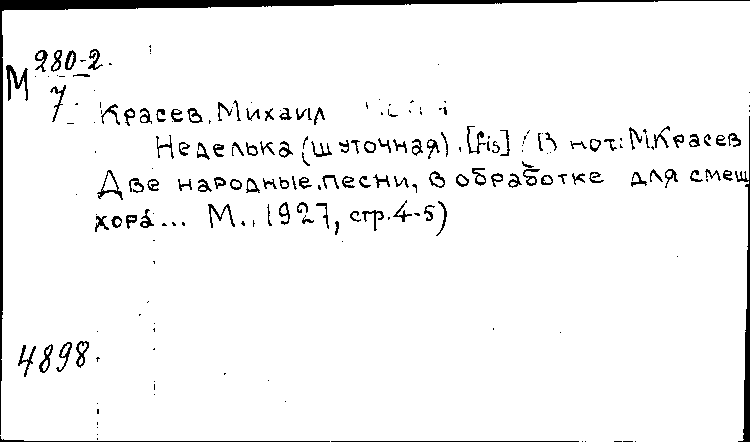 М 280-2.
7
Красев, Михаил
Неделька (шуточная). [fis] (В нот: М.Красев
Две народные песни, в обработке для смеш
хора... М., 1927, стр. 4-5)
4898.